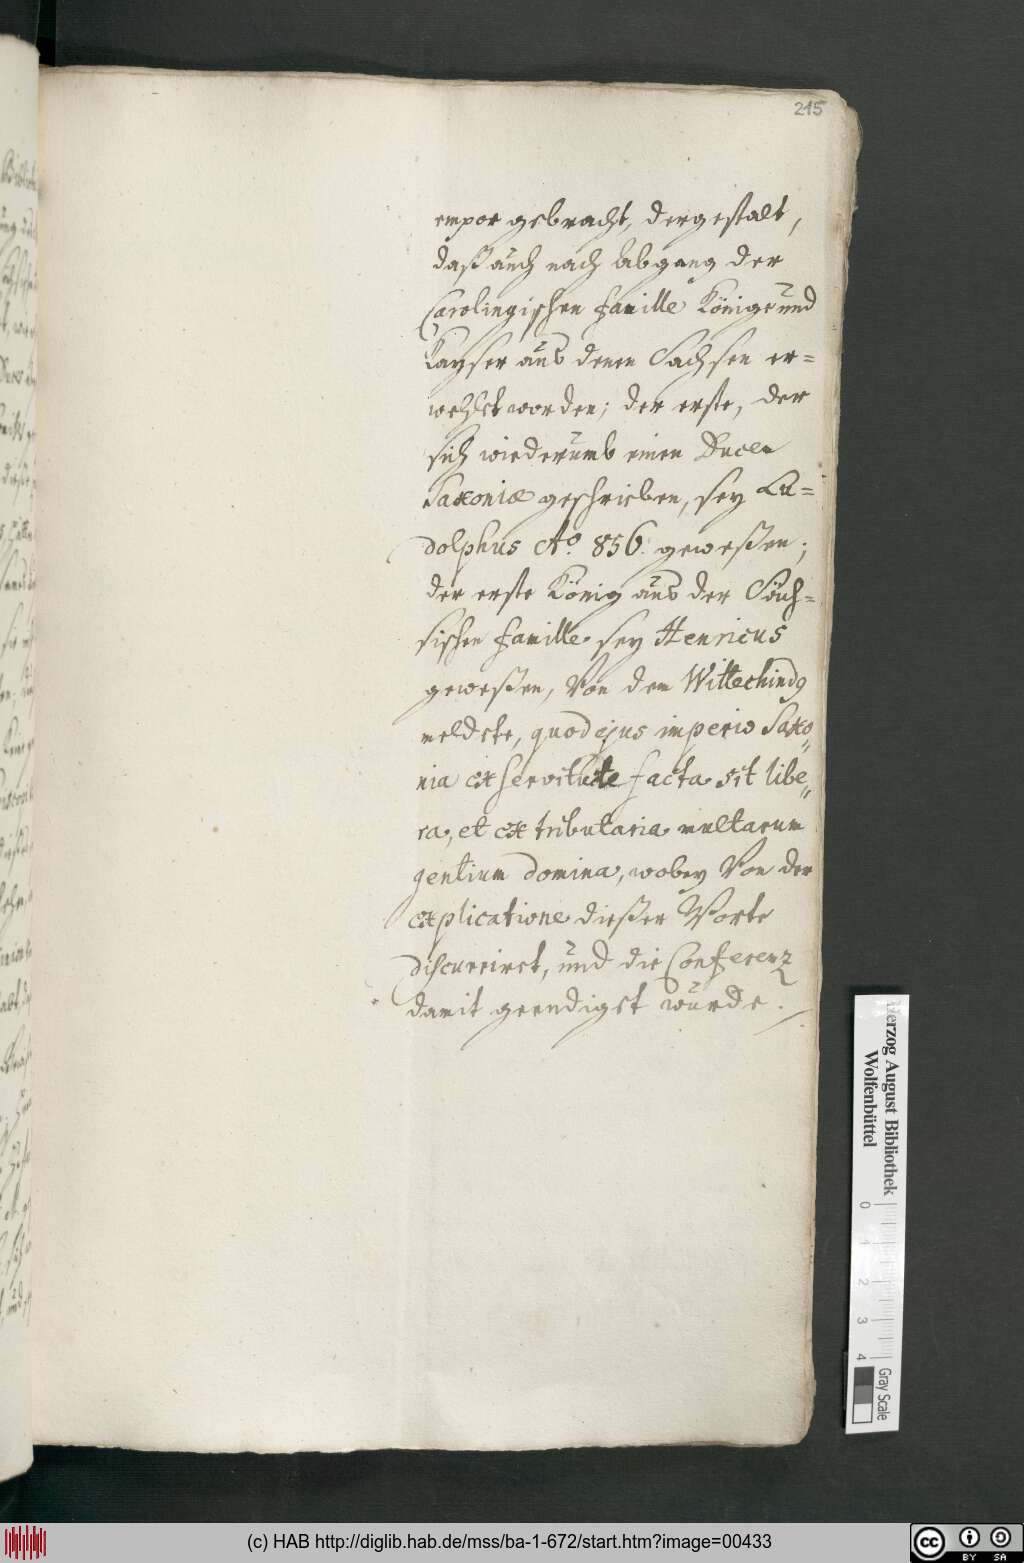 215
empor gebracht, dergestalt,
daß auch nach abgang der
Carolingischen famille Könige und
Kayser aus denen Sachsen er=
wehlet worden; der erste, der
sich wiederumb einen Ducem
Saxoniæ geschrieben, sey Lu=
dolphus Ao. 856. geweßen;
der erste König aus der Säch=
sischen famille sey Henricus
geweßen, Von dem Wittechindg
meldete, quod ejus imperio Saxo„
nia ex servitute facta sit libe„
ra, et ex tributaria multarum
gentium domina, wobey Von der
explicatione dießer Worte
discurriret, und die Conferenz
damit geendiget wurde.
Herzog August Bibliothek
Wolfenbüttel
0 1 2 3 4
Gray Scale
(c) HAB http://diglib.hab.de/mss/ba-1-672/start.htm?image=00433
cc BY SA